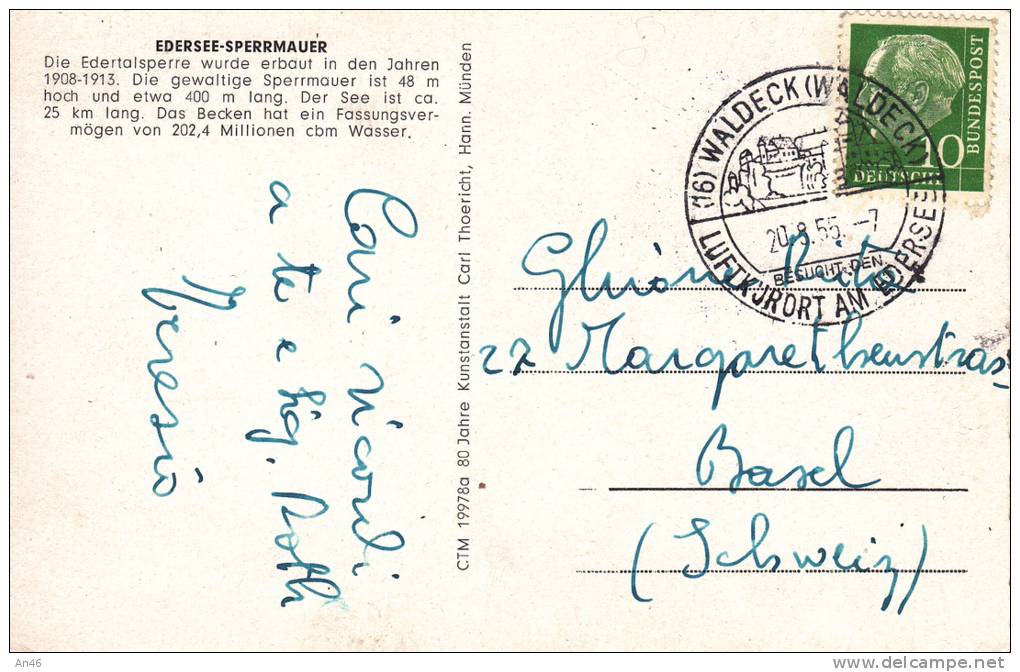 EDERSEE-SPERRMAUER
Die Edertalsperre wurde erbaut in den Jahren
1908-1913. Die gewaltige Sperrmauer ist 48 m
hoch und etwa 400 m lang. Der See ist ca.
25 km lang. Das Becken hat ein Fassungsver-
mögen von 202,4 Millionen cbm Wasser.
Cari
a te e Sig. Roth
CTM 19978a 80 Jahre Kunstanstalt Carl Thoericht, Hann. Münden
DEUTSCHE
BUNDESPOST
10
(16) WALDECK (WALDECK)
20.8.55.-7
BESUCHT DEN
LUFTKURORT AM EDERSEE
Rita
22 Margarethenstras
Basel
(Schweiz)
An46
www.delcampe.net